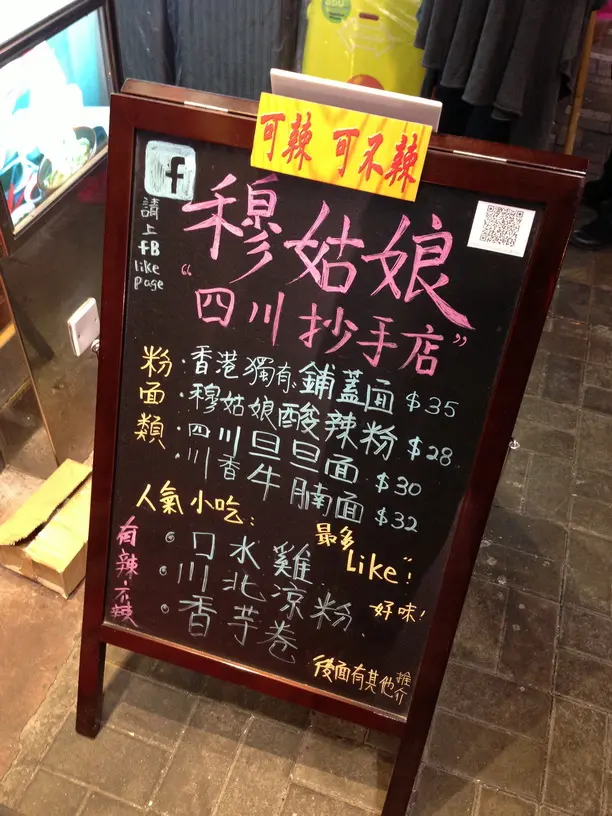 可辣 可不辣
f
請
上
fB
like
page
穆姑娘
“四川抄手店”
粉面類
·香港獨有鋪蓋面 $35
·穆姑娘酸辣粉 $28
·四川旦旦面 $30
·川香牛腩面 $32
人氣小吃:
最多
Like"!
·口水雞
·川北凉粉
好味!
·香芋卷
後面有其他推介